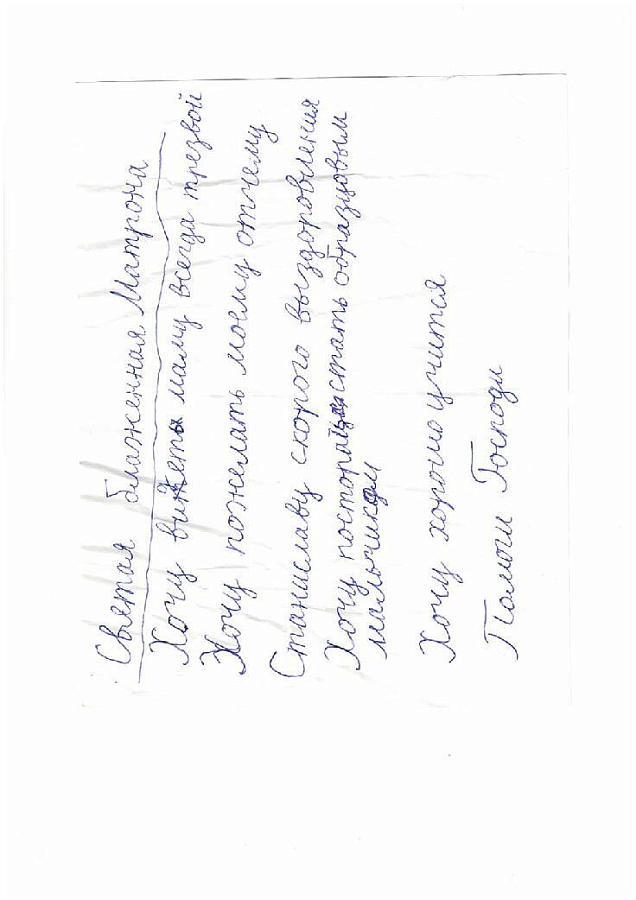 Святая блаженная Матрона
Хочу видеть маму всегда трезвой
Хочу пожелать моему отчему
Станиславу скорого выздоровления
Хочу постораца стать образцовым
мальчиком
Хочу хорошо учится
Памоги Господи